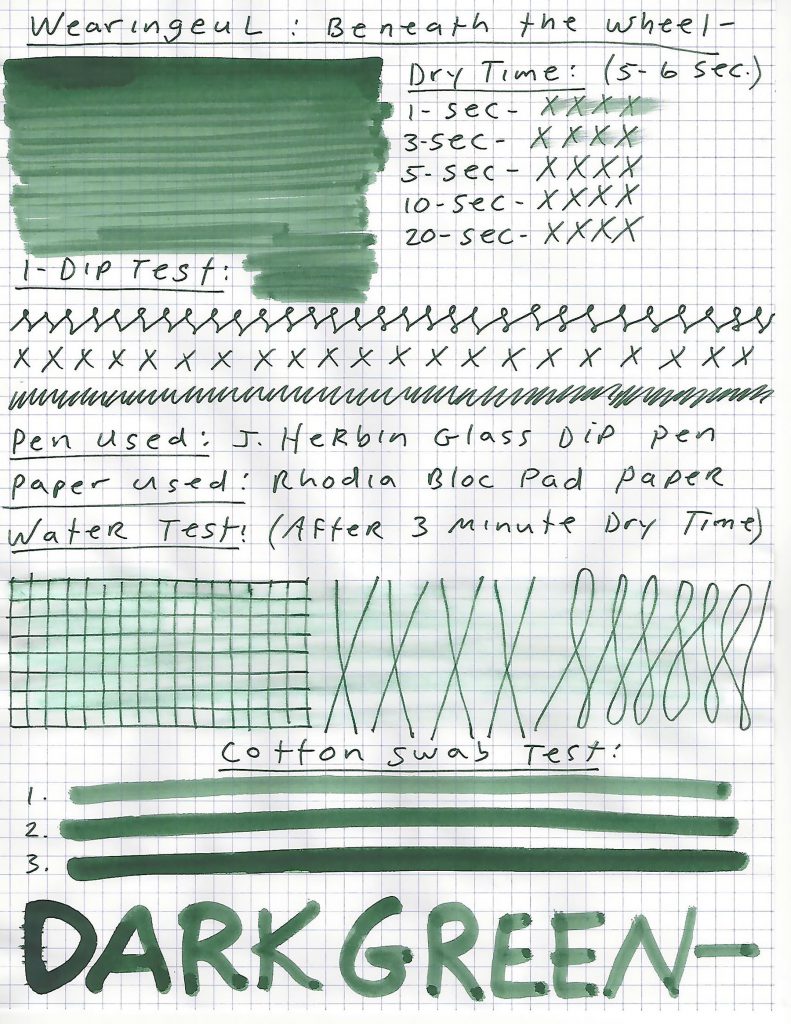 Wearingeul : Beneath the wheel-
Dry Time: (5-6 sec.)
1-sec- XXXX
3-sec- XXXX
5-sec- XXXX
10-sec- XXXX
20-sec- XXXX
1-Dip Test:
X X X X X X X X X X X X X X X X X X X X X
Pen used: J. Herbin Glass Dip pen
paper used: Rhodia Bloc Pad paper
Water Test: (After 3 minute Dry Time)
X X X X
Cotton swab Test:
1.
2.
3.
DARK GREEN-